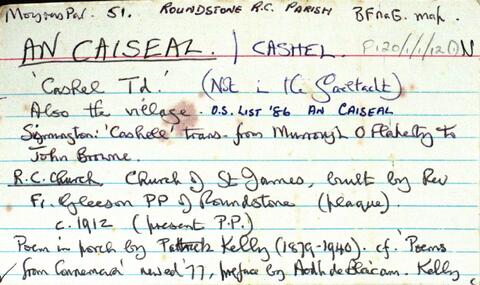 Moyrus Par. 51. ROUNDSTONE R.C. PARISH BFnaG. map.
P120/1/1/12(1) N
AN CAISEAL. | CASHEL
'Cashel Td.' (Not in the Gaeltacht)
Also the village. O.S. LIST '86 AN CAISEAL
'Cashell' trans. from Murrough O Flaherty to
John Browne.
R.C. Church Church of St James, built by Rev
Fr. Gleeson PP of Roundstone (plaque).
c. 1912 (present P.P.)
Poem in porch by Patrick Kelly (1879-1940). cf. 'Poems
from Connemara' 77, preface by Aodh de Blácam. Kelly